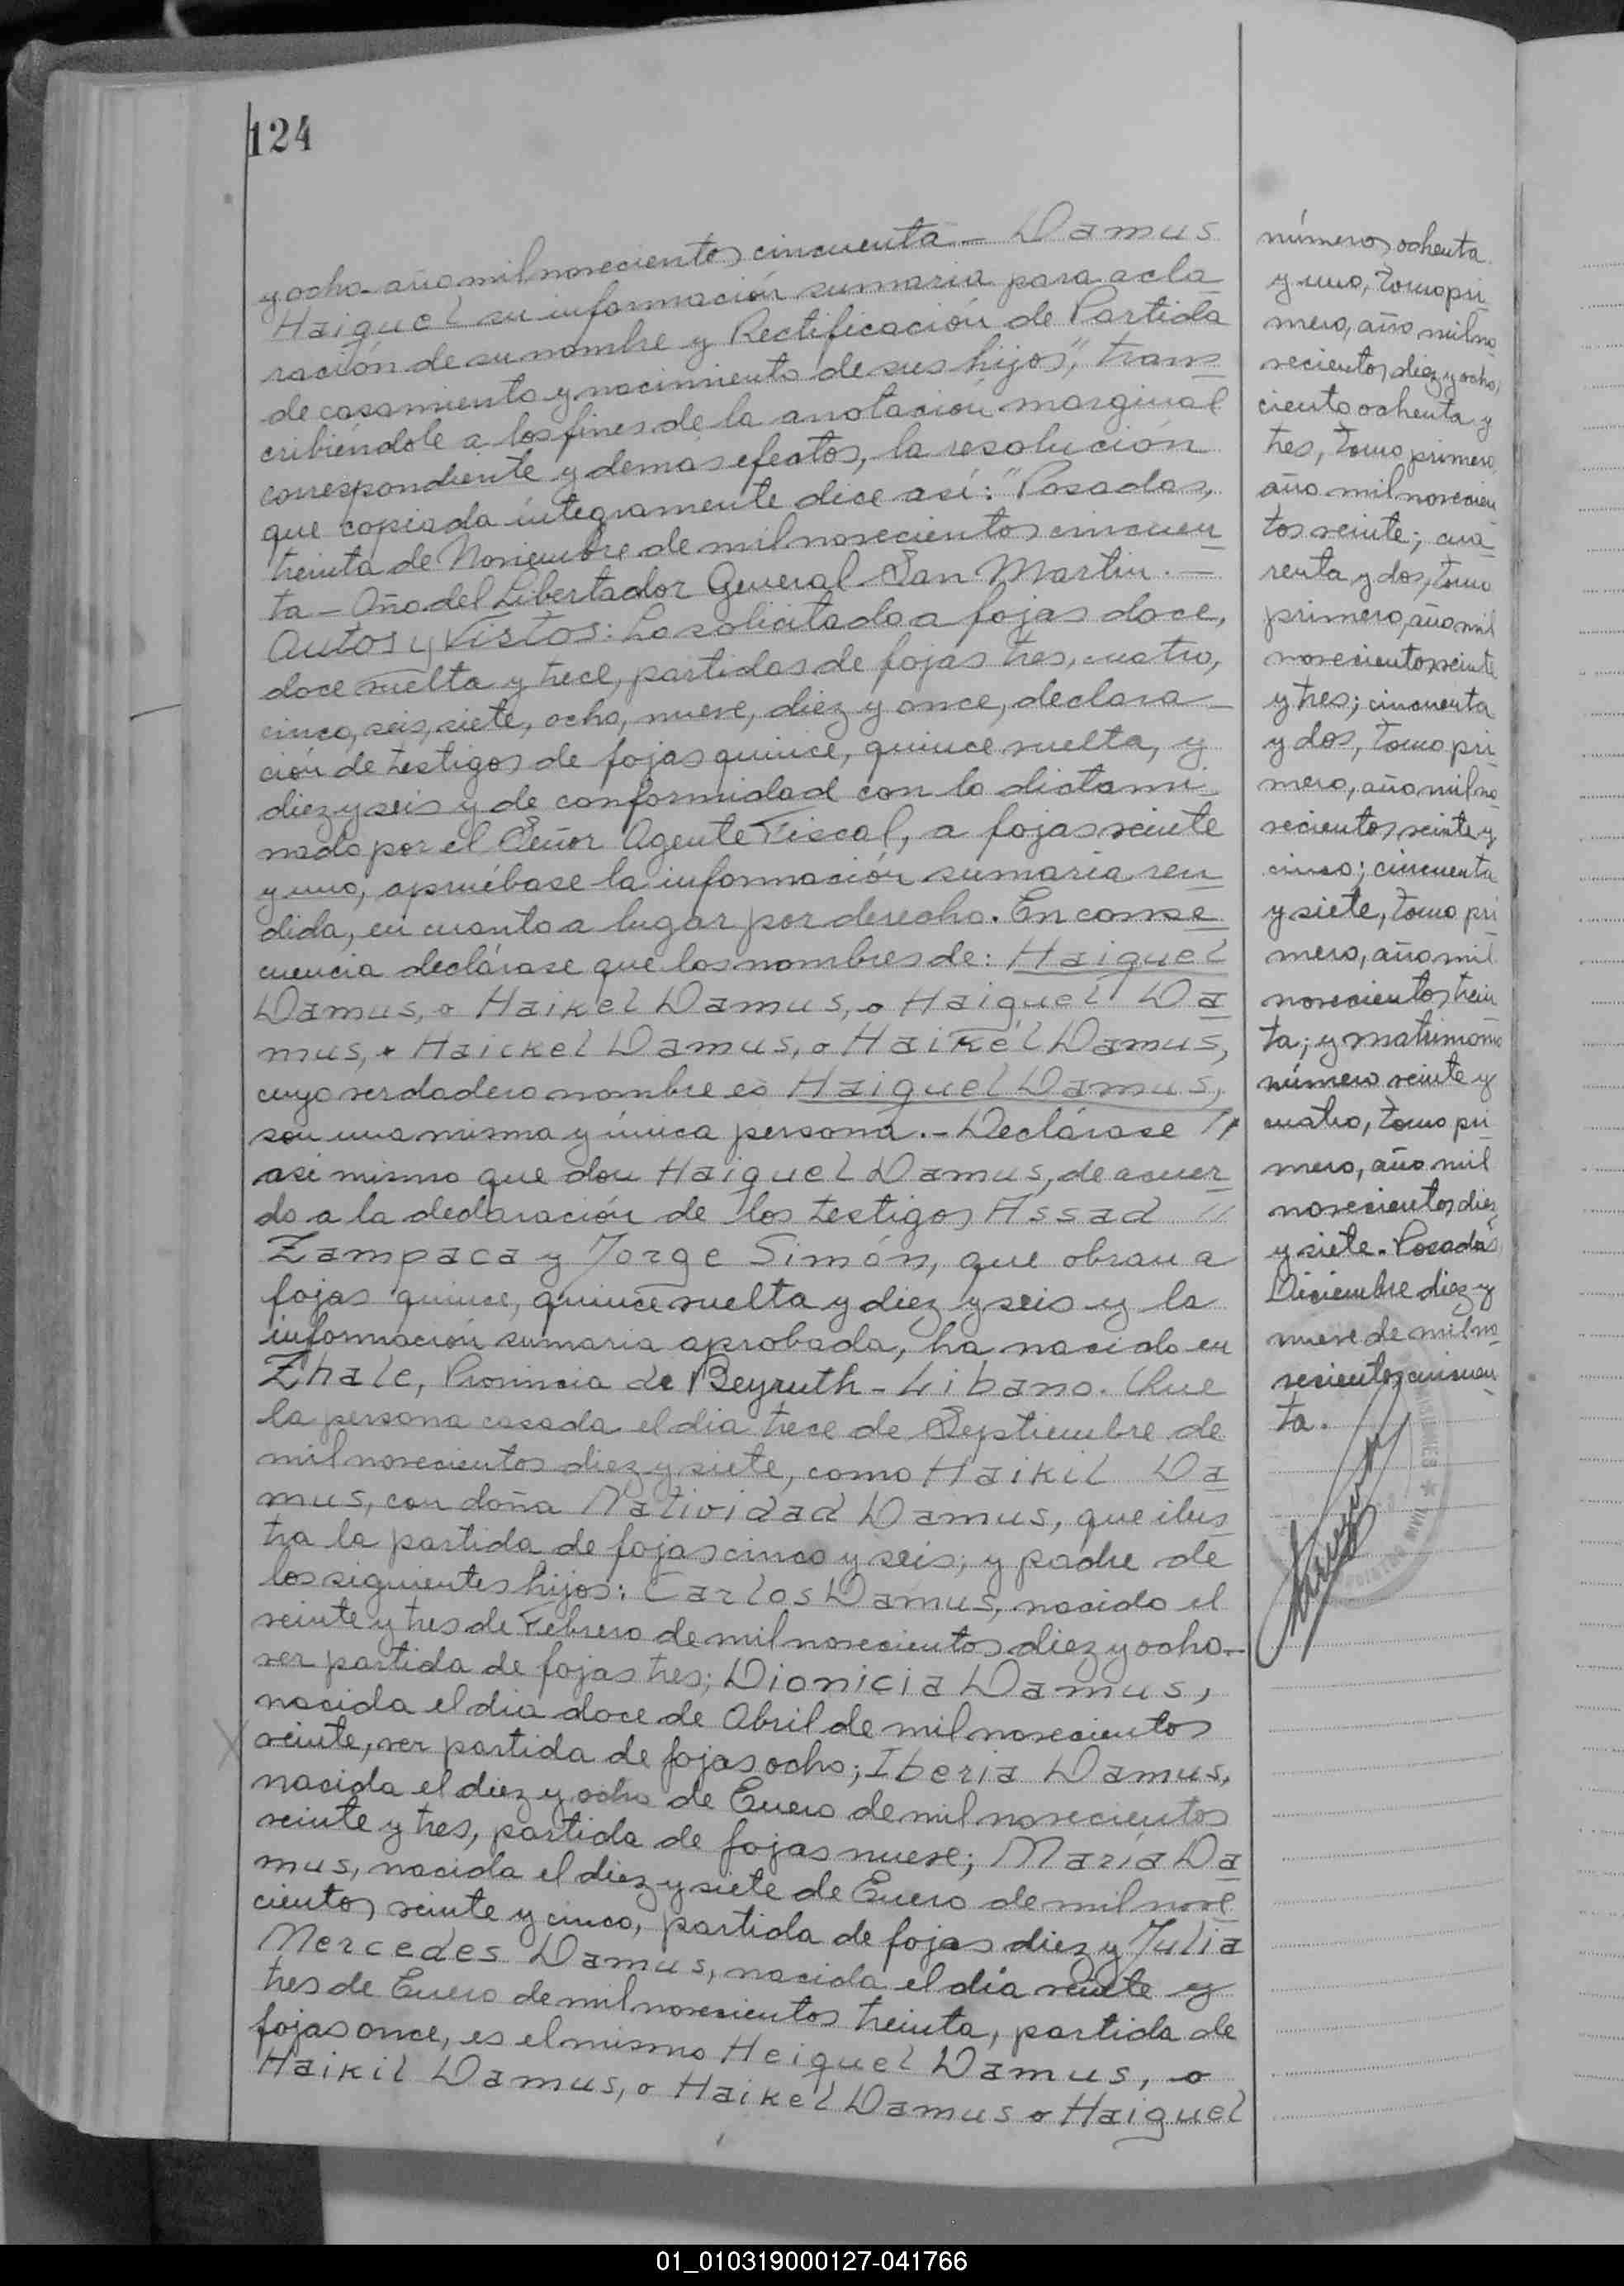 124
y ocho - año mil novecientos cincuenta - Damus
Haiquel su información sumaria para acla
ración de su nombre y Rectificación de Partida
de casamiento y nacimiento de sus hijos", trans
cribiéndole a los fines de la anotación marginal
correspondiente y demás efectos, la resolución
que copiada íntegramente dice así: "Posadas,
treinta de Noviembre de mil novecientos cincuen
ta - Año del Libertador General San Martín. -
Autos y Vistos: Lo solicitado a fojas doce,
doce vuelta y trece, partidas de fojas tres, cuatro,
cinco, seis, siete, ocho, nueve, diez y once, declara
ción de testigos de fojas quince, quince vuelta, y
diez y seis y de conformidad con lo dictami
nado por el Señor Agente Fiscal, a fojas veinte
y uno, apruébase la información sumaria ren
dida, en cuanto a lugar por derecho. En conse
cuencia declárase que los nombres de: Haiquel
Damus, o Haikel Damus, o Haiguel Da
mus, o Haickel Damus, o Haikel Damus,
cuyo verdadero nombre es Haiquel Damus,
son una misma y única persona. - Declárase //
así mismo que don Haiquel Damus, de acuer
do a la declaración de los testigos Assad //
Zampaca y Jorge Simón, que obran a
fojas quince, quince vuelta y diez y seis y la
información sumaria aprobada, ha nacido en
Zhale, Provincia de Beyruth - Líbano. Que
la persona casada el día trece de Septiembre de
mil novecientos diez y siete, como Haikil Da
mus, con doña Natividad Damus, que ilus
tra la partida de fojas cinco y seis; y padre de
los siguientes hijos: Carlos Damus, nacido el
veinte y tres de Febrero de mil novecientos diez y ocho -
ver partida de fojas tres; Dionicia Damus,
nacida el día doce de Abril de mil novecientos
veinte, ver partida de fojas ocho; Iberia Damus,
nacida el diez y ocho de Enero de mil novecientos
veinte y tres, partida de fojas nueve; María Da
mus, nacida el diez y siete de Enero de mil nove
cientos veinte y cinco, partida de fojas diez y Julia
Mercedes Damus, nacida el día veinte y
tres de Enero de mil novecientos treinta, partida de
fojas once, es el mismo Heiquel Damus, o
Haikil Damus, o Haikel Damus o Haiguel
números ochenta
y uno, tomo pri
mero, año mil no
vecientos diez y ocho,
ciento ochenta y
tres, tomo primero,
año mil novecien
tos veinte; cua
renta y dos, tomo
primero, año mil
novecientos veinte
y tres; cincuenta
y dos, tomo pri
mero, año mil no
vecientos veinte y
cinco; cincuenta
y siete, tomo pri
mero, año mil
novecientos trein
ta; y matrimonio
número veinte y
cuatro, tomo pri
mero, año mil
novecientos diez
y siete. Posadas,
Diciembre diez y
nueve de mil no
vecientos cincuen
ta.
01_010319000127-041766